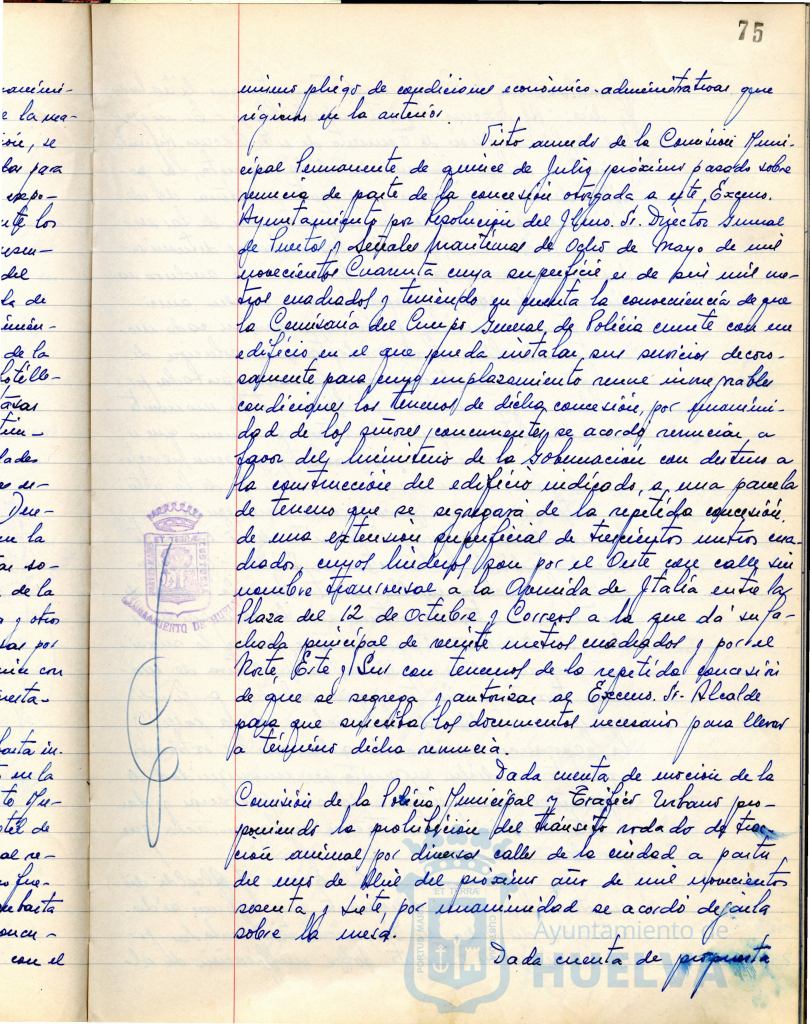 75
mismo pliego de condiciones económico-administrativas que
rigieron en la anterior.
Visto acuerdo de la Comisión Muni-
cipal Permanente de quince de Julio próximo pasado sobre
renuncia de parte de la concesión otorgada a este Excmo.
Ayuntamiento por Resolución del Iltmo. Sr. Director General
de Puertos y Señales Marítimas de Ocho de Mayo de mil
novecientos Cuarenta cuya superficie es de seis mil me-
tros cuadrados y teniendo en cuenta la conveniencia de que
la Comisaría del Cuerpo General de Policía cuente con un
edificio en el que pueda instalar sus servicios decoro-
samente para cuyo emplazamiento reune inmejorables
condiciones los terrenos de dicha concesión, por unanimi-
dad de los señores concurrentes se acordó renunciar a
favor del Ministerio de la Gobernación con destino a
la construcción del edificio indicado, a una parcela
de terreno que se segregará de la repetida concesión,
de una extensión superficial de trescientos metros cua-
drados, cuyos linderos son por el Oeste con calle sin
nombre transversal a la Avenida de Italia entre la
Plaza del 12 de Octubre y Correos a la que dá su fa-
chada principal de veinte metros cuadrados y por el
Norte, Este y Sur con terrenos de la repetida concesión
de que se segrega y autorizar al Excmo. Sr. Alcalde
para que suscriba los documentos necesarios para llevar
a término dicha renuncia.
Dada cuenta de moción de la
Comisión de la Policía Municipal y Tráfico Urbano pro-
poniendo la prohibición del tránsito rodado de trac-
ción animal por diversas calles de la ciudad a partir
del mes de Abril del próximo año de mil novecientos
sesenta y siete, por unanimidad se acordó dejarla
sobre la mesa.
Dada cuenta de propuesta
Ayuntamiento de
HUELVA